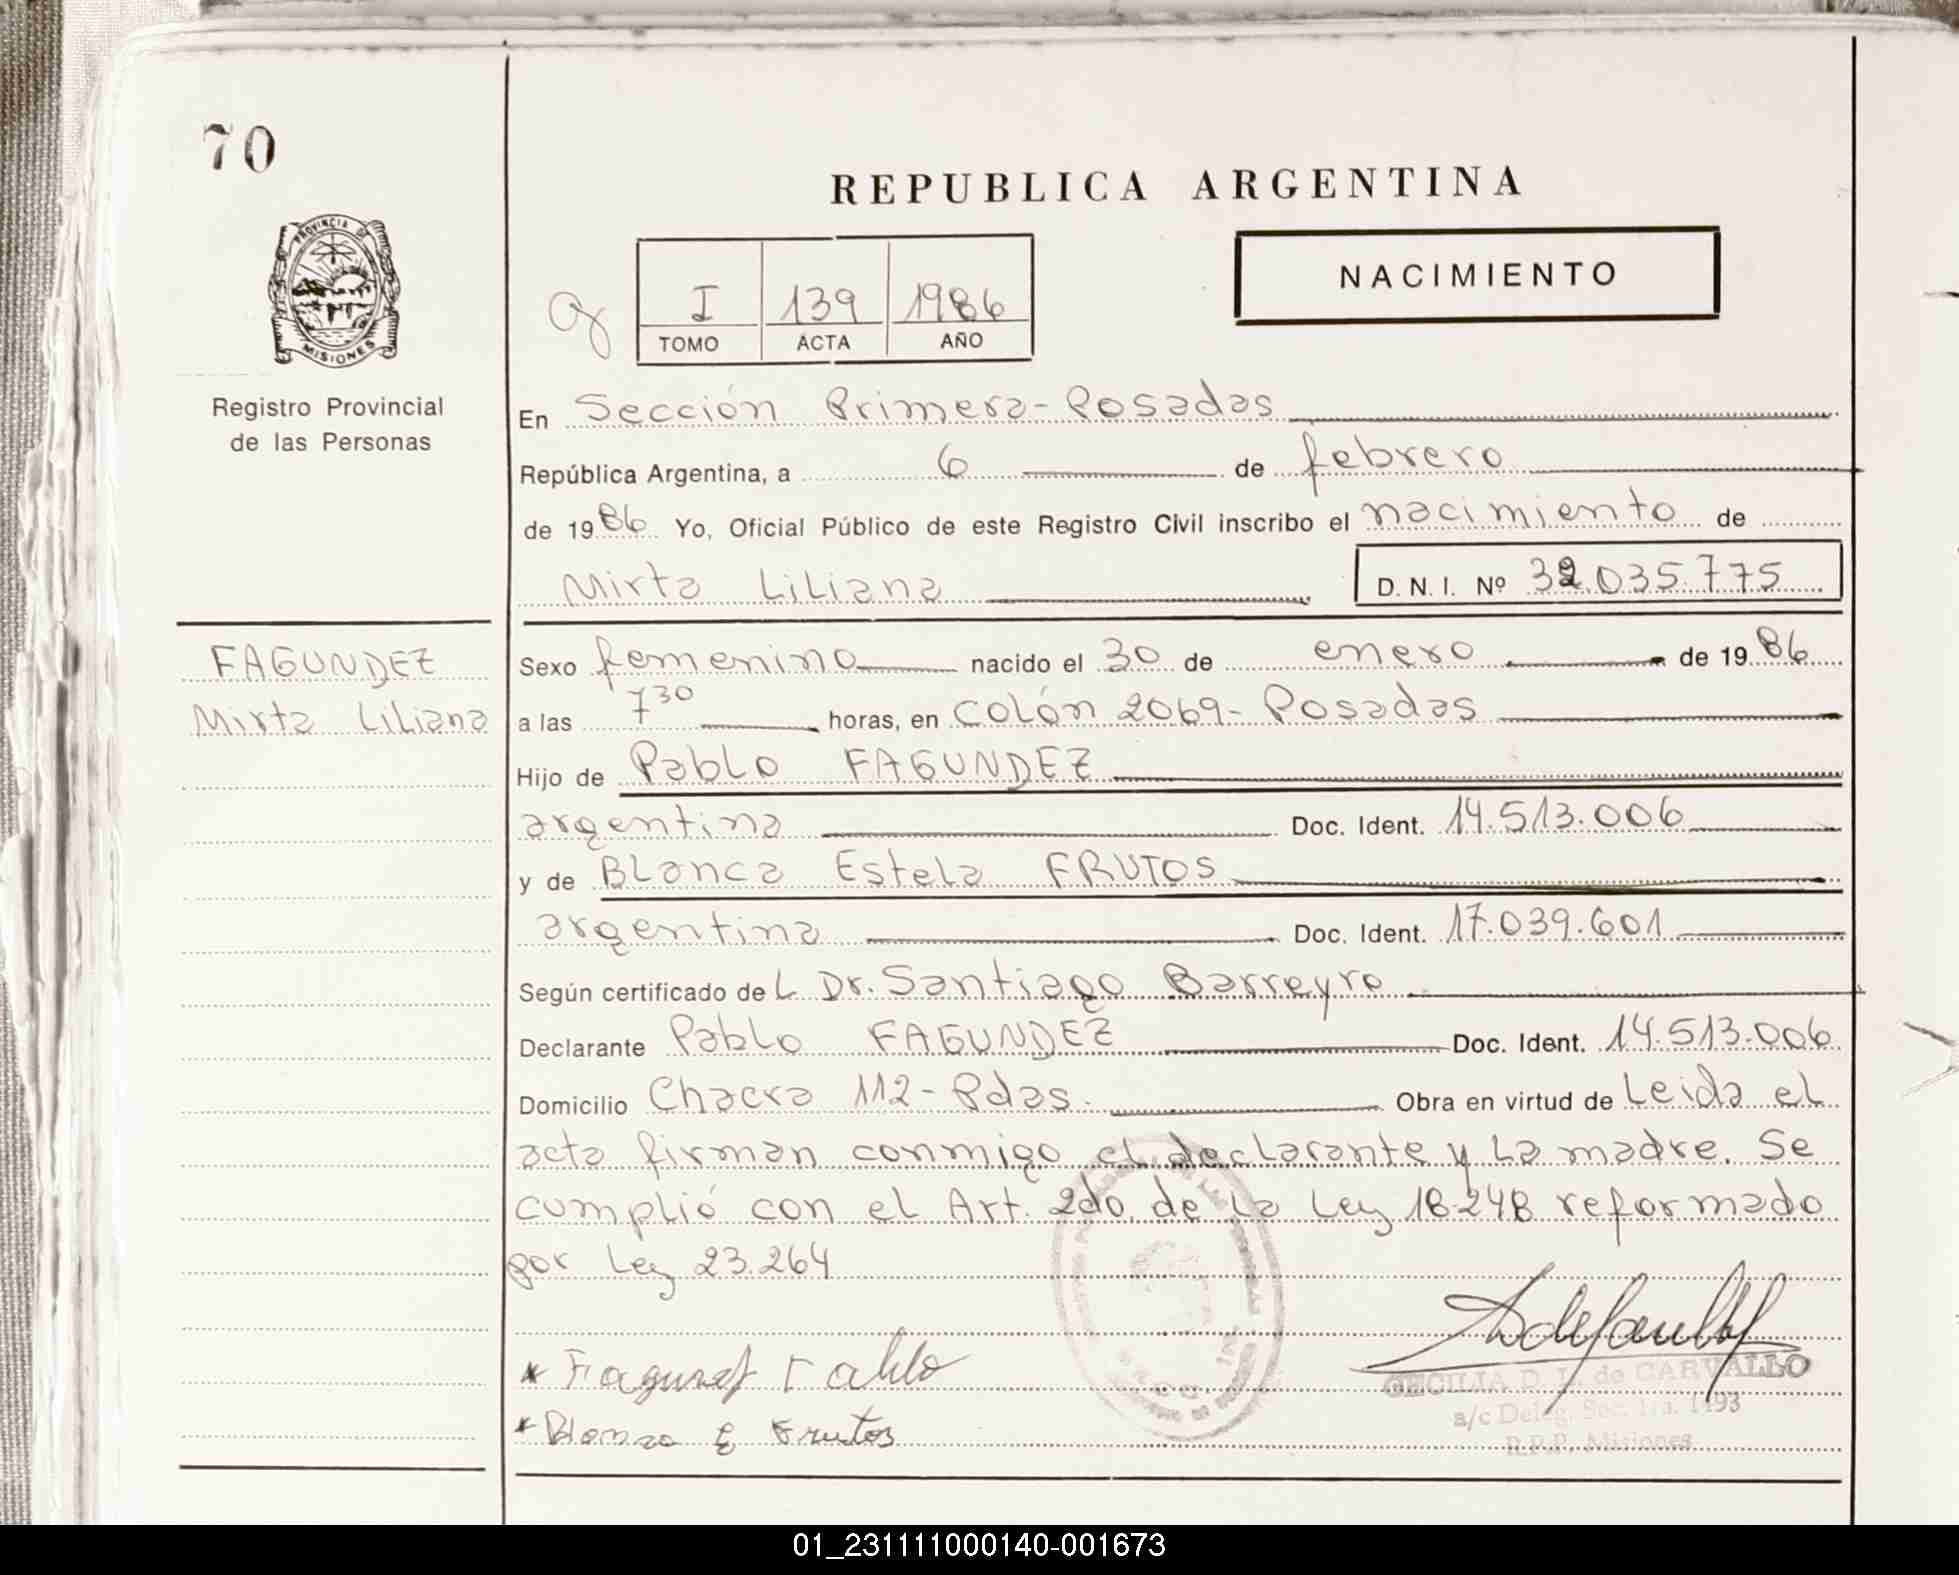 70
REPUBLICA ARGENTINA
PROVINCIA DE
MISIONES
Registro Provincial
de las Personas
I 139 1986
TOMO ACTA AÑO
NACIMIENTO
En Sección Primera-Posadas
República Argentina, a 6 de febrero
de 1986 Yo, Oficial Público de este Registro Civil inscribo el nacimiento de
Mirta Liliana D.N.I. Nº 32.035.775
FAGUNDEZ
Mirta Liliana
Sexo femenino nacido el 30 de enero de 1986
a las 7 30 horas, en Colón 2069- Posadas
Hijo de Pablo FAGUNDEZ
argentina Doc. Ident. 14.513.006
y de Blanca Estela FRUTOS
argentina Doc. Ident. 17.039.601
Según certificado del Dr. Santiago Barreyro
Declarante Pablo FAGUNDEZ Doc. Ident. 14.513.006
Domicilio Chacra 112- Pdas. Obra en virtud de Leida el
acta firman conmigo el declarante y la madre. Se
cumplió con el Art. 2do. de la Ley 18248 reformado
por Ley 23.264
Pablo
Blanca E Frutos
CECILIA D. de CARVALLO
a/c Deleg. Sec. 1ra. 1193
R.P.P. Misiones
01_231111000140-001673